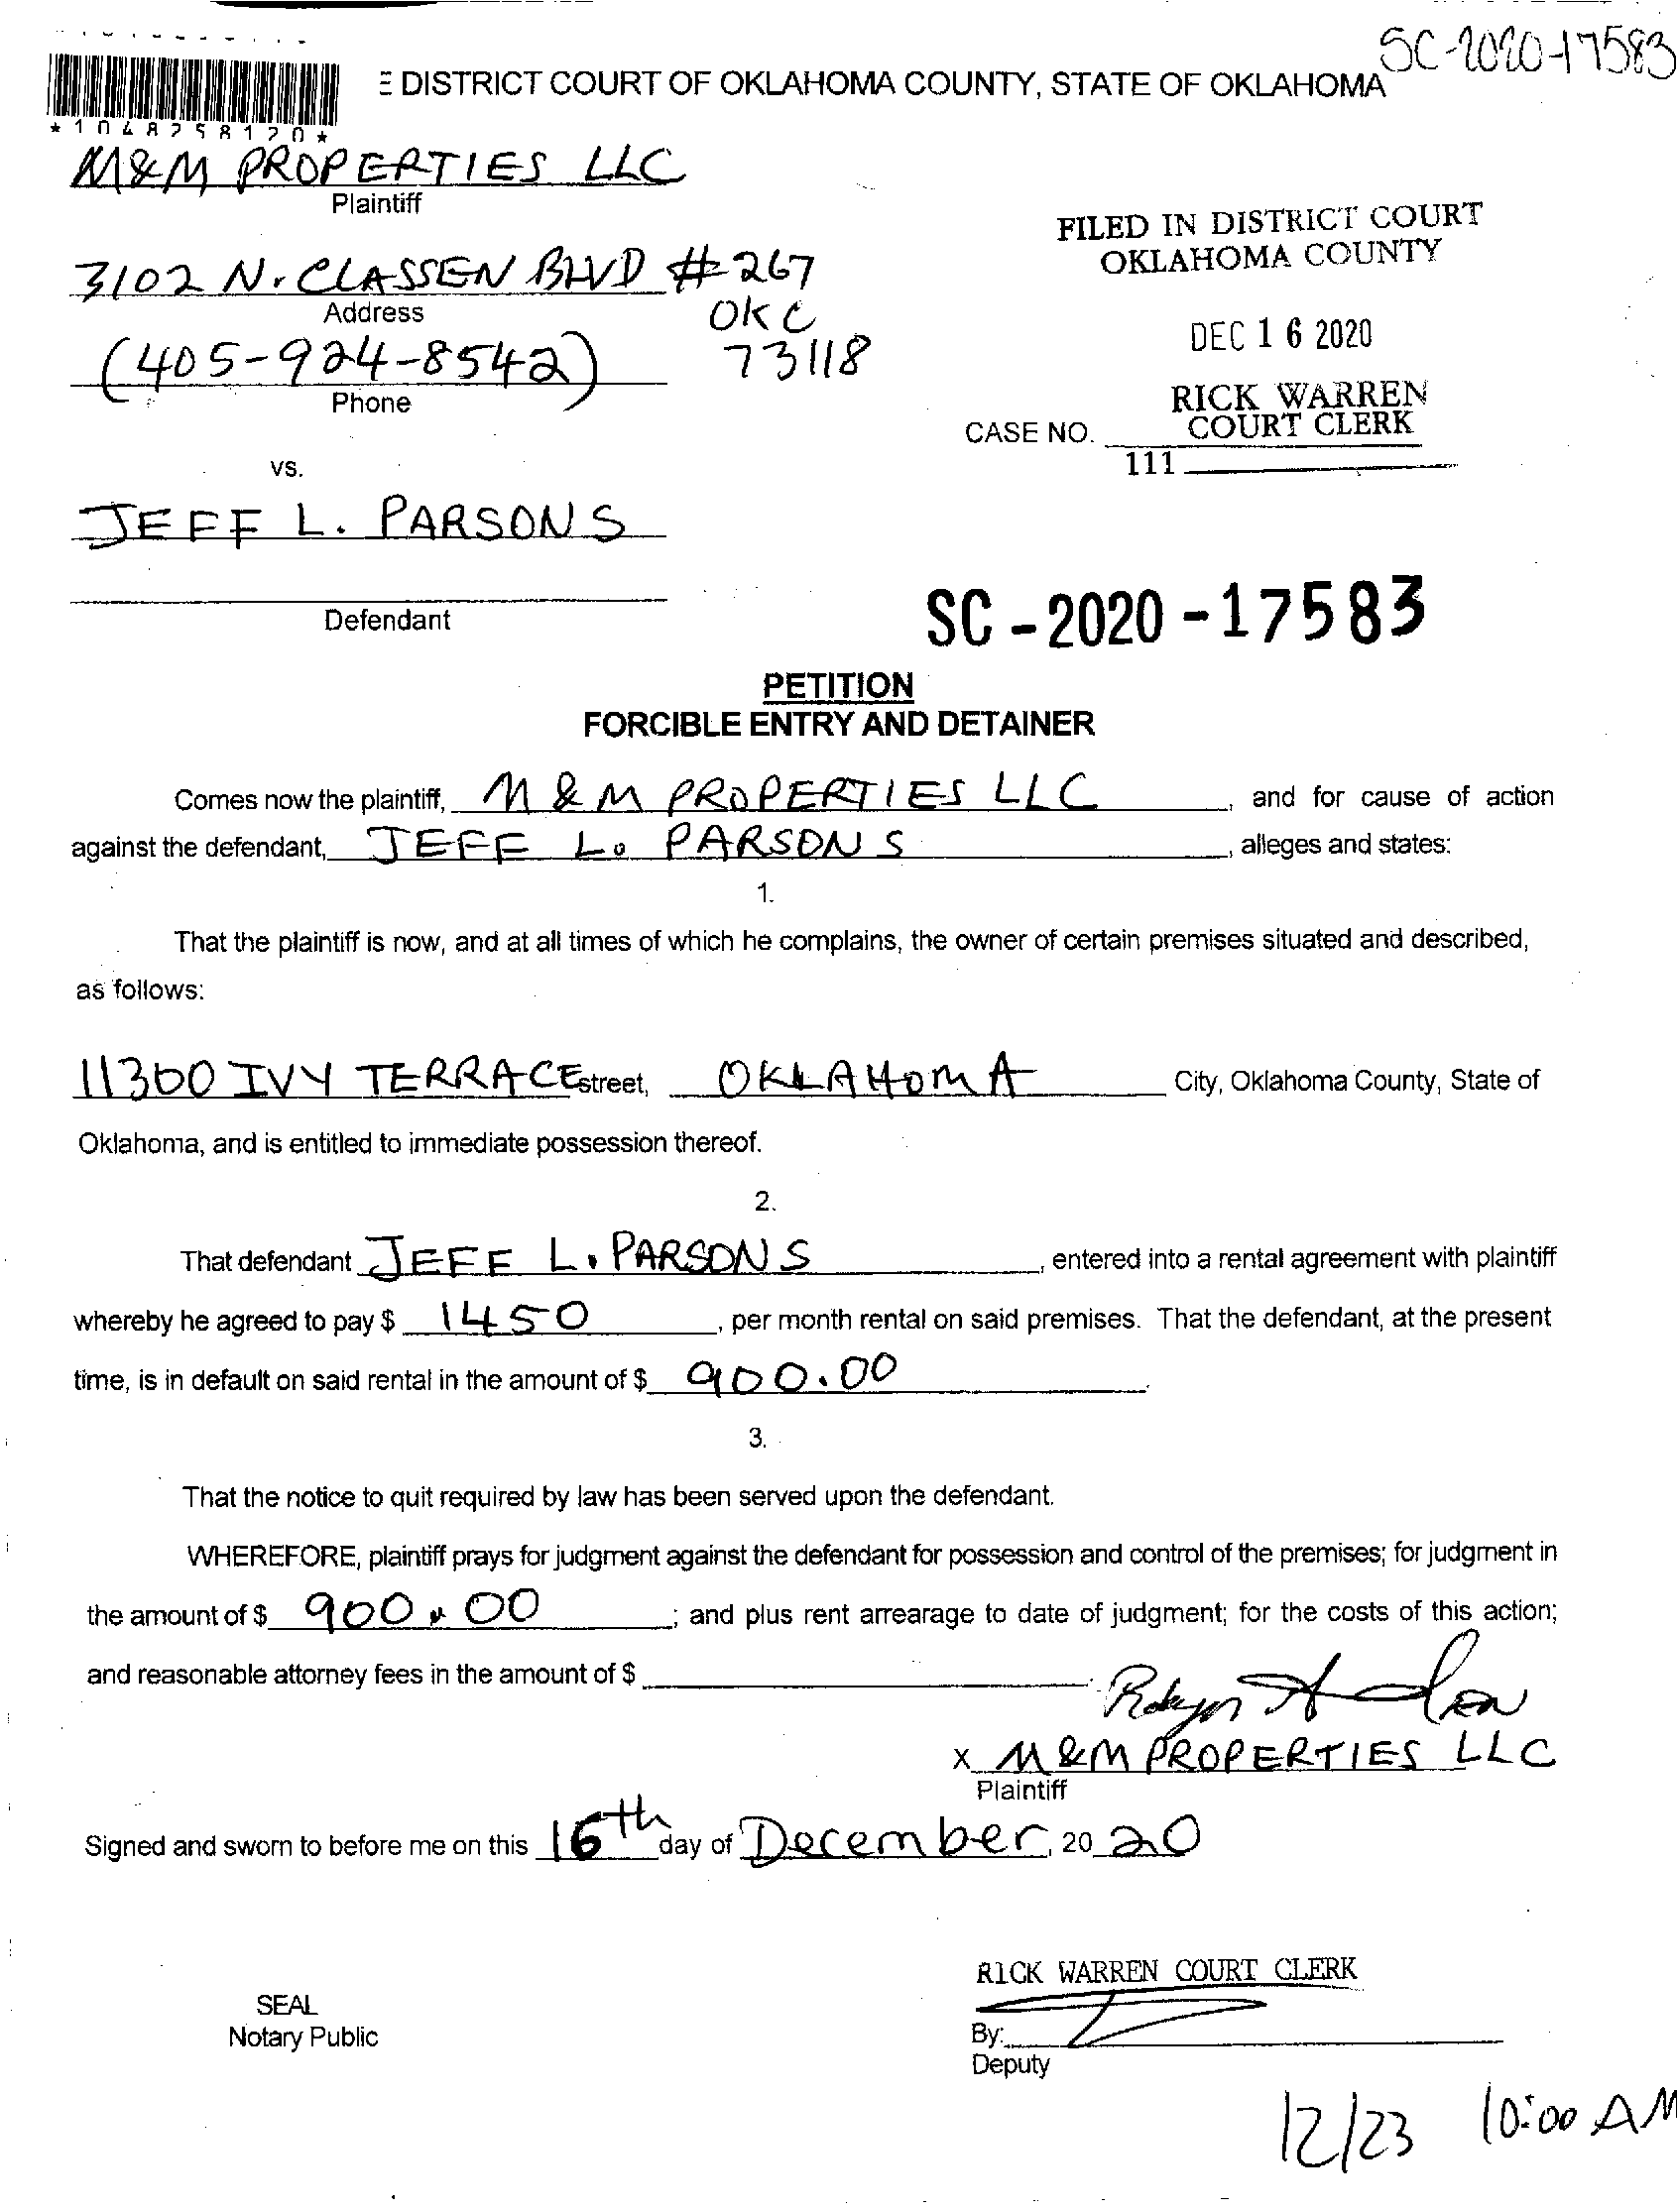 SC-2020-17583
E DISTRICT COURT OF OKLAHOMA COUNTY, STATE OF OKLAHOMA
*1048258120*
M&M PROPERTIES LLC
Plaintiff
FILED IN DISTRICT COURT
OKLAHOMA COUNTY
3102 N. CLASSEN BLVD #267
Address
OKC
DEC 16 2020
(405-924-8542)
73118
Phone
RICK WARREN
COURT CLERK
CASE NO.
111
vs.
JEFF L. PARSONS
Defendant
SC-2020-17583
PETITION
FORCIBLE ENTRY AND DETAINER
Comes now the plaintiff, M & M PROPERTIES LLC, and for cause of action
against the defendant, JEFF L. PARSONS, alleges and states:
1.
That the plaintiff is now, and at all times of which he complains, the owner of certain premises situated and described,
as follows:
11300 IVY TERRACE street, OKLAHOMA City, Oklahoma County, State of
Oklahoma, and is entitled to immediate possession thereof.
2.
That defendant JEFF L. PARSONS, entered into a rental agreement with plaintiff
whereby he agreed to pay $ 1450, per month rental on said premises. That the defendant, at the present
time, is in default on said rental in the amount of $ 900.00.
3.
That the notice to quit required by law has been served upon the defendant.
WHEREFORE, plaintiff prays for judgment against the defendant for possession and control of the premises; for judgment in
the amount of $ 900.00; and plus rent arrearage to date of judgment; for the costs of this action;
and reasonable attorney fees in the amount of $
x M&M PROPERTIES LLC
Plaintiff
Signed and sworn to before me on this 16th day of December, 20 20
RICK WARREN COURT CLERK
SEAL
Notary Public
By:
Deputy
12/23 10:00 AM